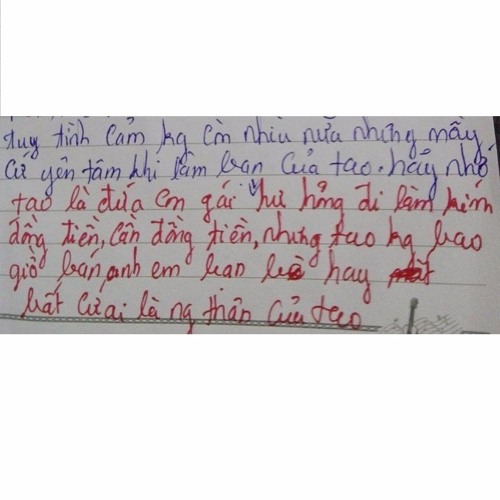 tuy tình cảm kg còn nhiù nửa nhưng mầy
Cứ yên tâm khi làm bạn của tao. hảy nhớ
tao là đứa con gái hư hỏng đi làm kiếm
đồng tiền, cần đồng tiền, nhưng tao kg bao
giờ bán, anh em bạn bè hay
bất cứ ai là ng thân của tao